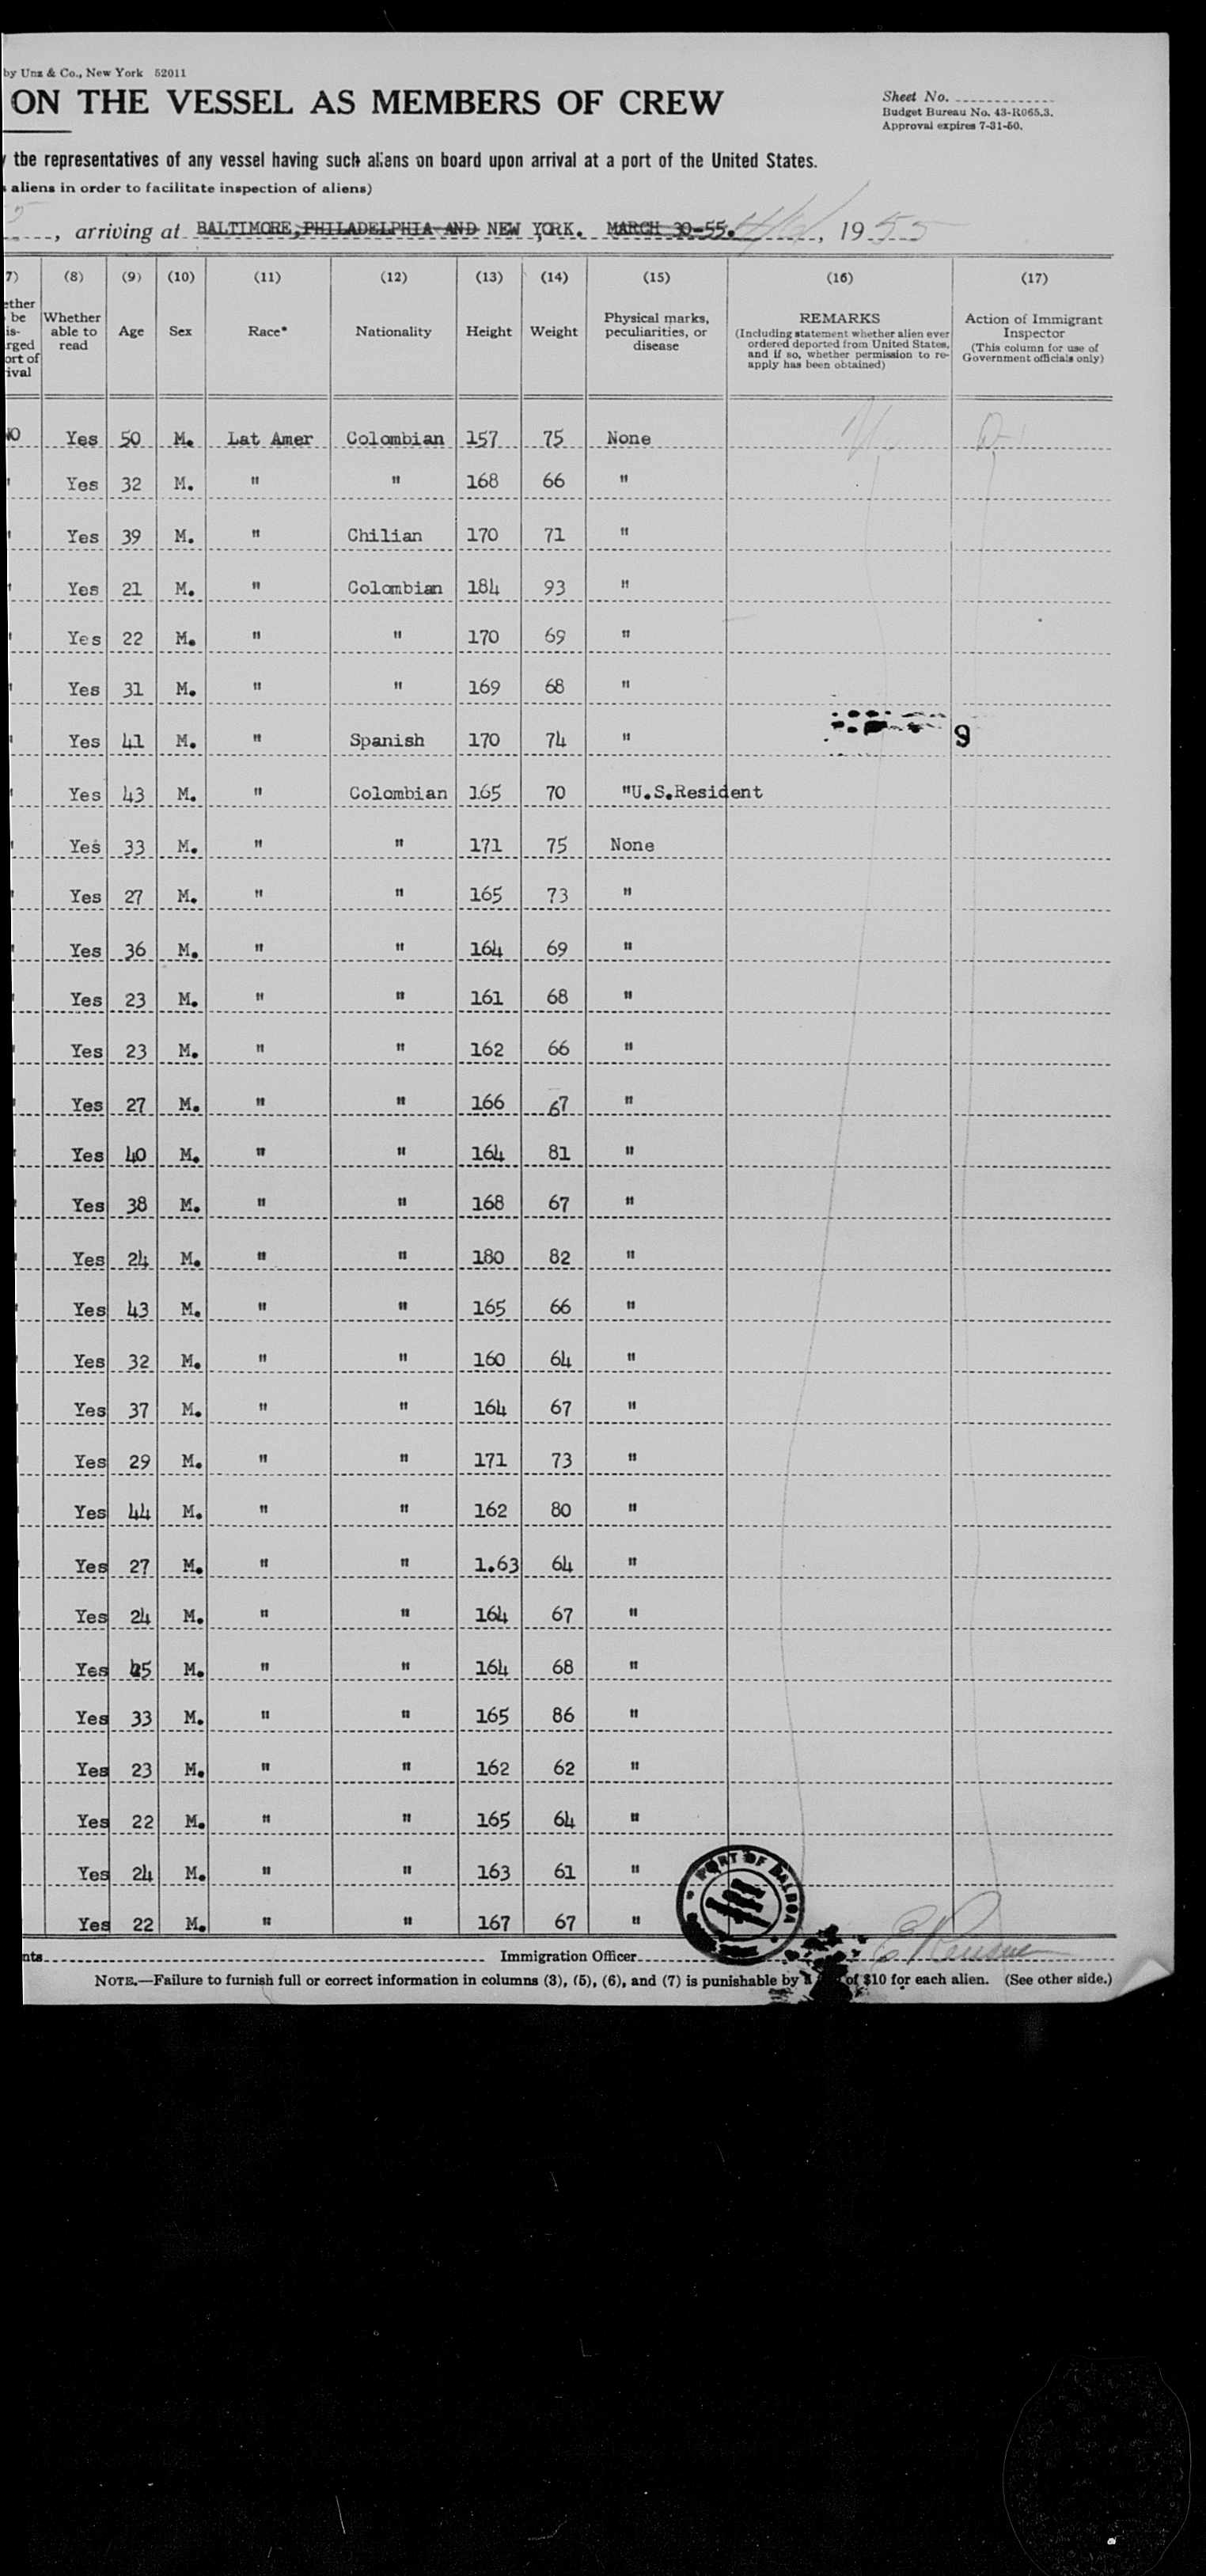 by Unz & Co., New York 52011
ON THE VESSEL AS MEMBERS OF CREW
Sheet No.
Budget Bureau No. 43-R065.3.
Approval expires 7-31-50.
the representatives of any vessel having such aliens on board upon arrival at a port of the United States.
aliens in order to facilitate inspection of aliens)
5, arriving at BALTIMORE, PHILADELPHIA AND NEW YORK. MARCH 30-55., 1955
7) (8) (9) (10) (11) (12) (13) (14) (15) (16) (17)
ether be is- rged ort of ival
Whether able to read
Age
Sex
Race*
Nationality
Height
Weight
Physical marks, peculiarities, or disease
REMARKS
(Including statement whether alien ever ordered deported from United States, and if so, whether permission to re-apply has been obtained)
Action of Immigrant Inspector
(This column for use of Government officials only)
NO Yes 50 M. Lat Amer Colombian 157 75 None
" Yes 32 M. " " 168 66 "
" Yes 39 M. " Chilian 170 71 "
" Yes 21 M. " Colombian 184 93 "
" Yes 22 M. " " 170 69 "
" Yes 31 M. " " 169 68 "
" Yes 41 M. " Spanish 170 74 " 9
" Yes 43 M. " Colombian 165 70 "U.S.Resident
" Yes 33 M. " " 171 75 None
" Yes 27 M. " " 165 73 "
" Yes 36 M. " " 164 69 "
" Yes 23 M. " " 161 68 "
" Yes 23 M. " " 162 66 "
" Yes 27 M. " " 166 67 "
" Yes 40 M. " " 164 81 "
" Yes 38 M. " " 168 67 "
" Yes 24 M. " " 180 82 "
" Yes 43 M. " " 165 66 "
" Yes 32 M. " " 160 64 "
" Yes 37 M. " " 164 67 "
" Yes 29 M. " " 171 73 "
" Yes 44 M. " " 162 80 "
" Yes 27 M. " " 1.63 64 "
" Yes 24 M. " " 164 67 "
Yes 25 M. " " 164 68 "
Yes 33 M. " " 165 86 "
Yes 23 M. " " 162 62 "
Yes 22 M. " " 165 64 "
Yes 24 M. " " 163 61 "
Yes 22 M. " " 167 67 "
PORT OF BALBOA
nts Immigration Officer
NOTE.—Failure to furnish full or correct information in columns (3), (5), (6), and (7) is punishable by a of $10 for each alien. (See other side.)